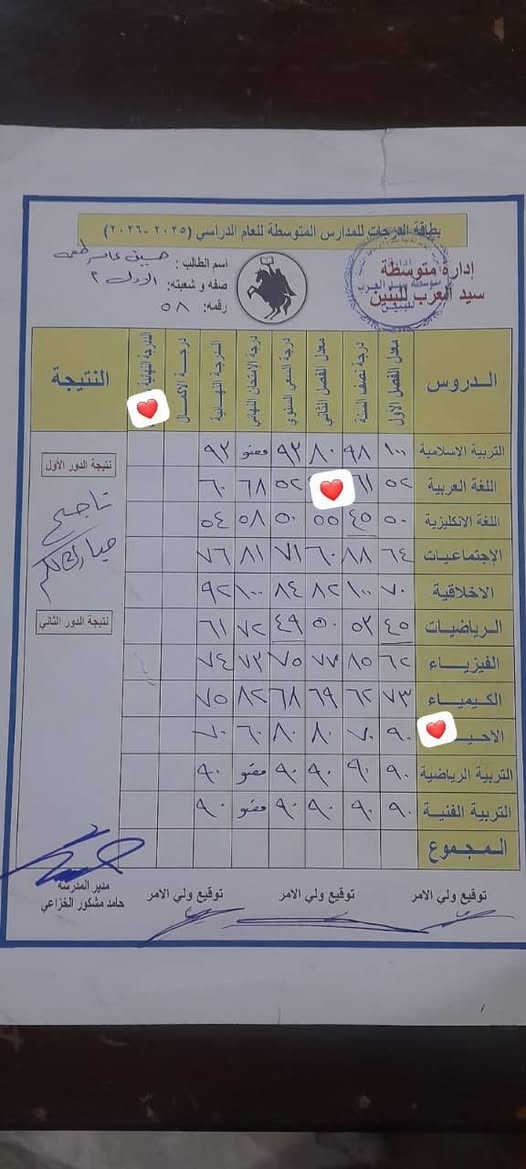 بطاقة الدرجات للمدارس المتوسطة للعام الدراسي (٢٠٢٥-٢٠٢٦)
إدارة متوسطة
سيد العرب للبنين
اسم الطالب :
صفه و شعبته: الاول ٢
رقمه: ٥٨
الـدروس | معدل الفصل الأول | درجة نصف السنة | معدل الفصل الثاني | درجة السعي السنوي | درجة الامتحان النهائي | الدرجة النهائية | درجة الاكمال | الدرجة النهائية | النتيجة
التربية الإسلامية ١٠٠ ٩٨ ٨٠ ٩٣ معفو ٩٣
اللغة العربية ٥٢ ٥٢ ٦٨ ٦٠
اللغة الانكليزية ٥٠ ٤٥ ٥٥ ٥٠ ٥٨ ٥٤
الإجتماعيات ٦٤ ٨٨ ٦٠ ٧١ ٨١ ٧٦
الاخلاقية ٧٠ ١٠٠ ٨٢ ٨٤ ١٠٠ ٩٢
الـرياضيات ٤٥ ٥٣ ٥٠ ٤٩ ٧٢ ٦١
الفيزيـاء ٦٢ ٨٥ ٧٧ ٧٥ ٧٣ ٧٤
الكيميـاء ٧٣ ٦٢ ٦٩ ٦٨ ٨٢ ٧٥
الاحيـ ٩٠ ٧٠ ٨٠ ٨٠ ٦٠ ٧٠
التربية الرياضية ٩٠ ٩٠ ٩٠ ٩٠ معفو ٩٠
التربية الفنية ٩٠ ٩٠ ٩٠ ٩٠ معفو ٩٠
الـمجموع
نتيجة الدور الأول
ناجح
نتيجة الدور الثاني
توقيع ولي الامر
توقيع ولي الامر
توقيع ولي الامر
مدير المدرسة
حامد مشكور الخزاعي